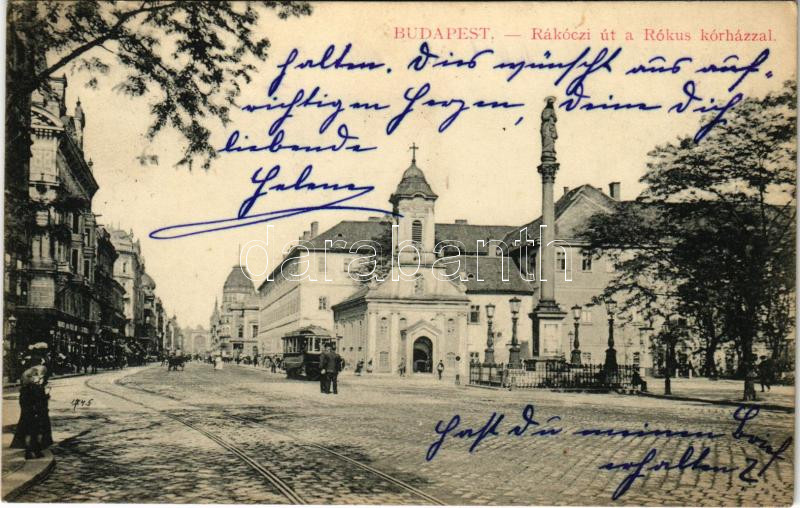 BUDAPEST. — Rákóczi út a Rókus kórházzal.
halten. Dies wünscht aus auf=
richtigen Herzen, Deine Dich
liebende
Helene
darabanth
1745
hast Du meinen Brief
erhalten?